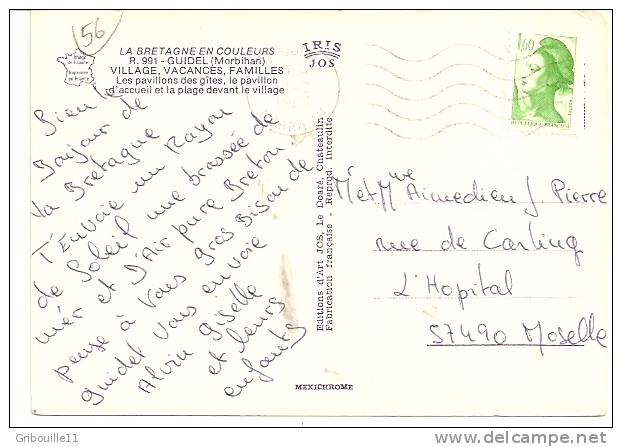 56
Image de France
Imprimée en France
LA BRETAGNE EN COULEURS
R. 991 - GUIDEL (Morbihan)
VILLAGE, VACANCES, FAMILLES
Les pavillons des gîtes, le pavillon
d'accueil et la plage devant le village
IRIS
JOS
1,60
REPUBLIQUE FRANÇAISE
Bien le
Bonjour de
la Bretagne
T'Envoie un Rayon
de Soleil une brassée de
mer et D'Air pure Breton
pense à Vous gros Bisou de
guidel Vous envoie
Alvin Giselle
et leurs
enfants
Editions d'Art JOS, Le Doaré, Chateaulin
Fabrication française - Reprod. interdite.
Mr et Mme Aimedieu J. Pierre
rue de Carling
L'Hopital
57490 Moselle
MEXICHROME
Gribouille11
delcampe.net